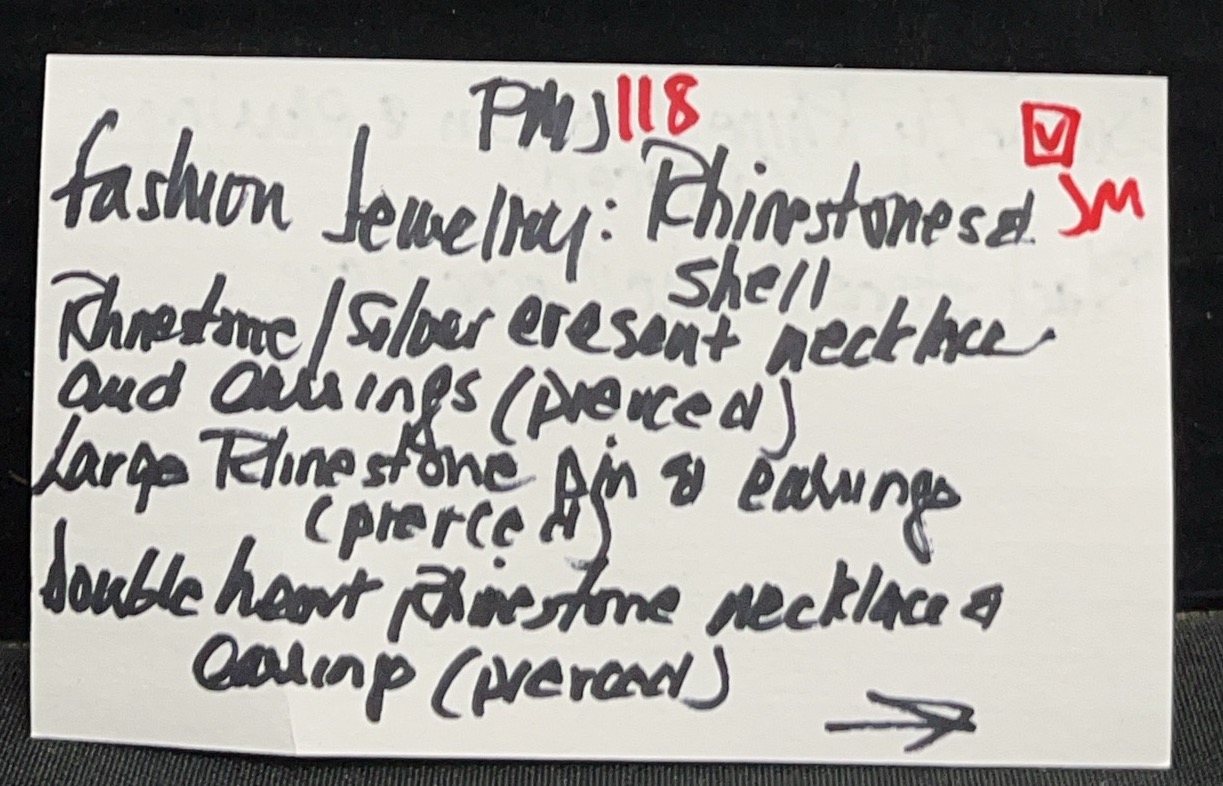 PMJ118
☑
JM
fashion Jewelry: Rhinestones &
shell
Rhinestone/Silver cresent necklace
and earrings (pierced)
Large Rhinestone pin & earrings
(pierced)
Double heart Rhinestone necklace &
earrings (pierced)
→